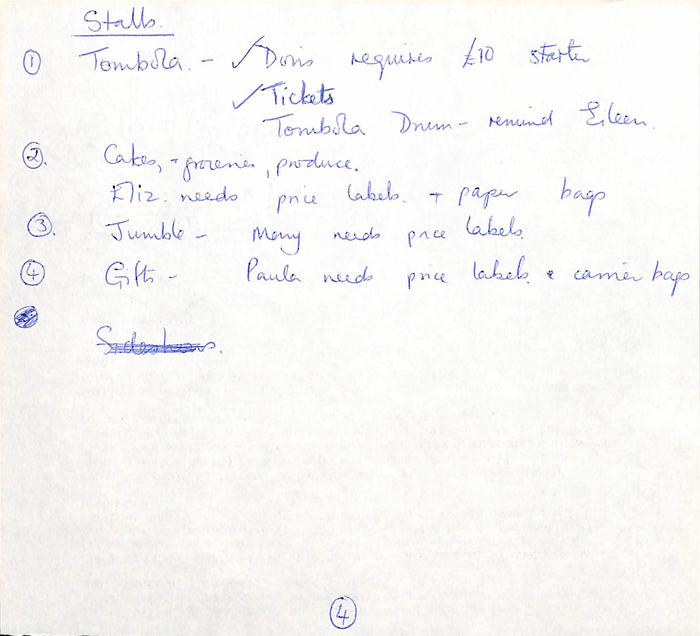 Stalls.
① Tombola. - ✓ Doris requires £10 starter
✓ Tickets
Tombola Drum - remind Eileen.
②. Cakes, - groceries, produce.
Eliz. needs price labels. + paper bags
③. Jumble - Mary needs price labels.
④ Gifts - Paula needs price labels. & carrier bags
Sideshows.
④